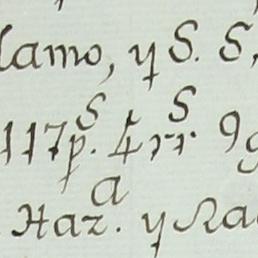 lamo, y S. S,
117 pS. 4 rrS. 9
Haza. y Ra